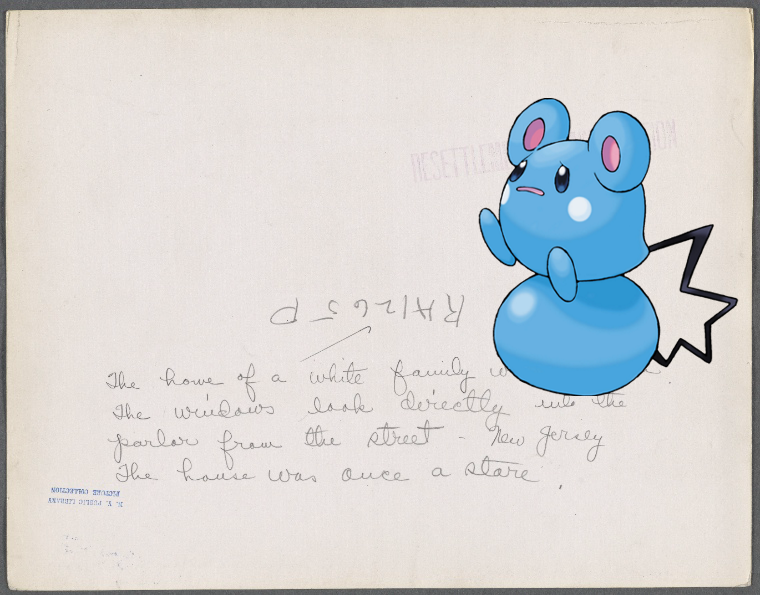 The home of a white family
The windows look directly into the
parlor from the street - New Jersey
The house was once a store.
N. Y. PUBLIC LIBRARY
PICTURE COLLECTION